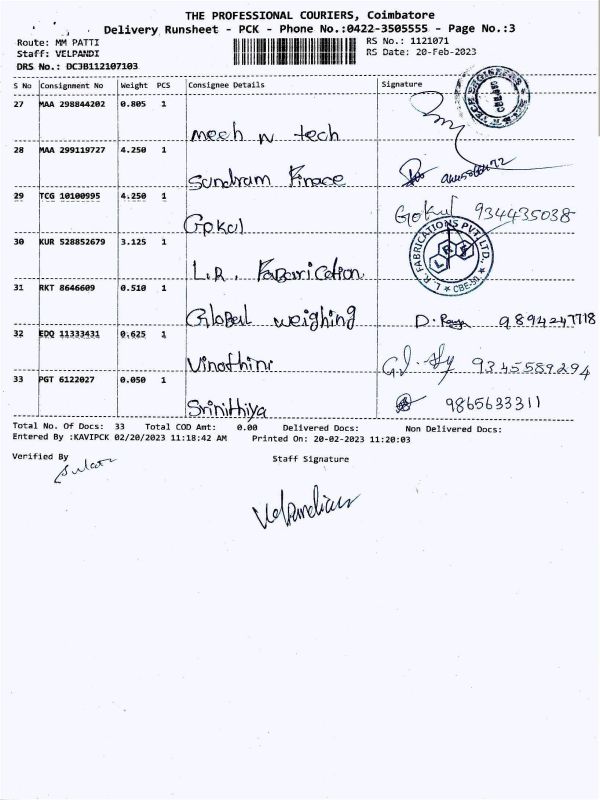 THE PROFESSIONAL COURIERS, Coimbatore
Delivery Runsheet - PCK - Phone No.:0422-3505555 - Page No.:3
Route: MM PATTI RS No.: 1121071
Staff: VELPANDI RS Date: 20-Feb-2023
DRS No.: DCJB112107103
S No Consignment No Weight PCS Consignee Details Signature
27 MAA 298844202 0.805 1
Mech N tech
28 MAA 299119727 4.250 1
Sundram Finace
29 TCG 10100995 4.250 1
Gokul 934435038
Gokul
30 KUR 528852679 3.125 1
L.R. FABRICATIONS PVT. LTD., CBE-50
L.R. Fabarication
31 RKT 8646609 0.510 1
Global weighing D. 9894247718
32 EDQ 11333431 0.625 1
Vinothini 9345589294
33 PGT 6122027 0.050 1
Srinithiya 9865633311
Total No. Of Docs: 33 Total COD Amt: 0.00 Delivered Docs: Non Delivered Docs:
Entered By :KAVIPCK 02/20/2023 11:18:42 AM Printed On: 20-02-2023 11:20:03
Verified By Staff Signature
Velpandian